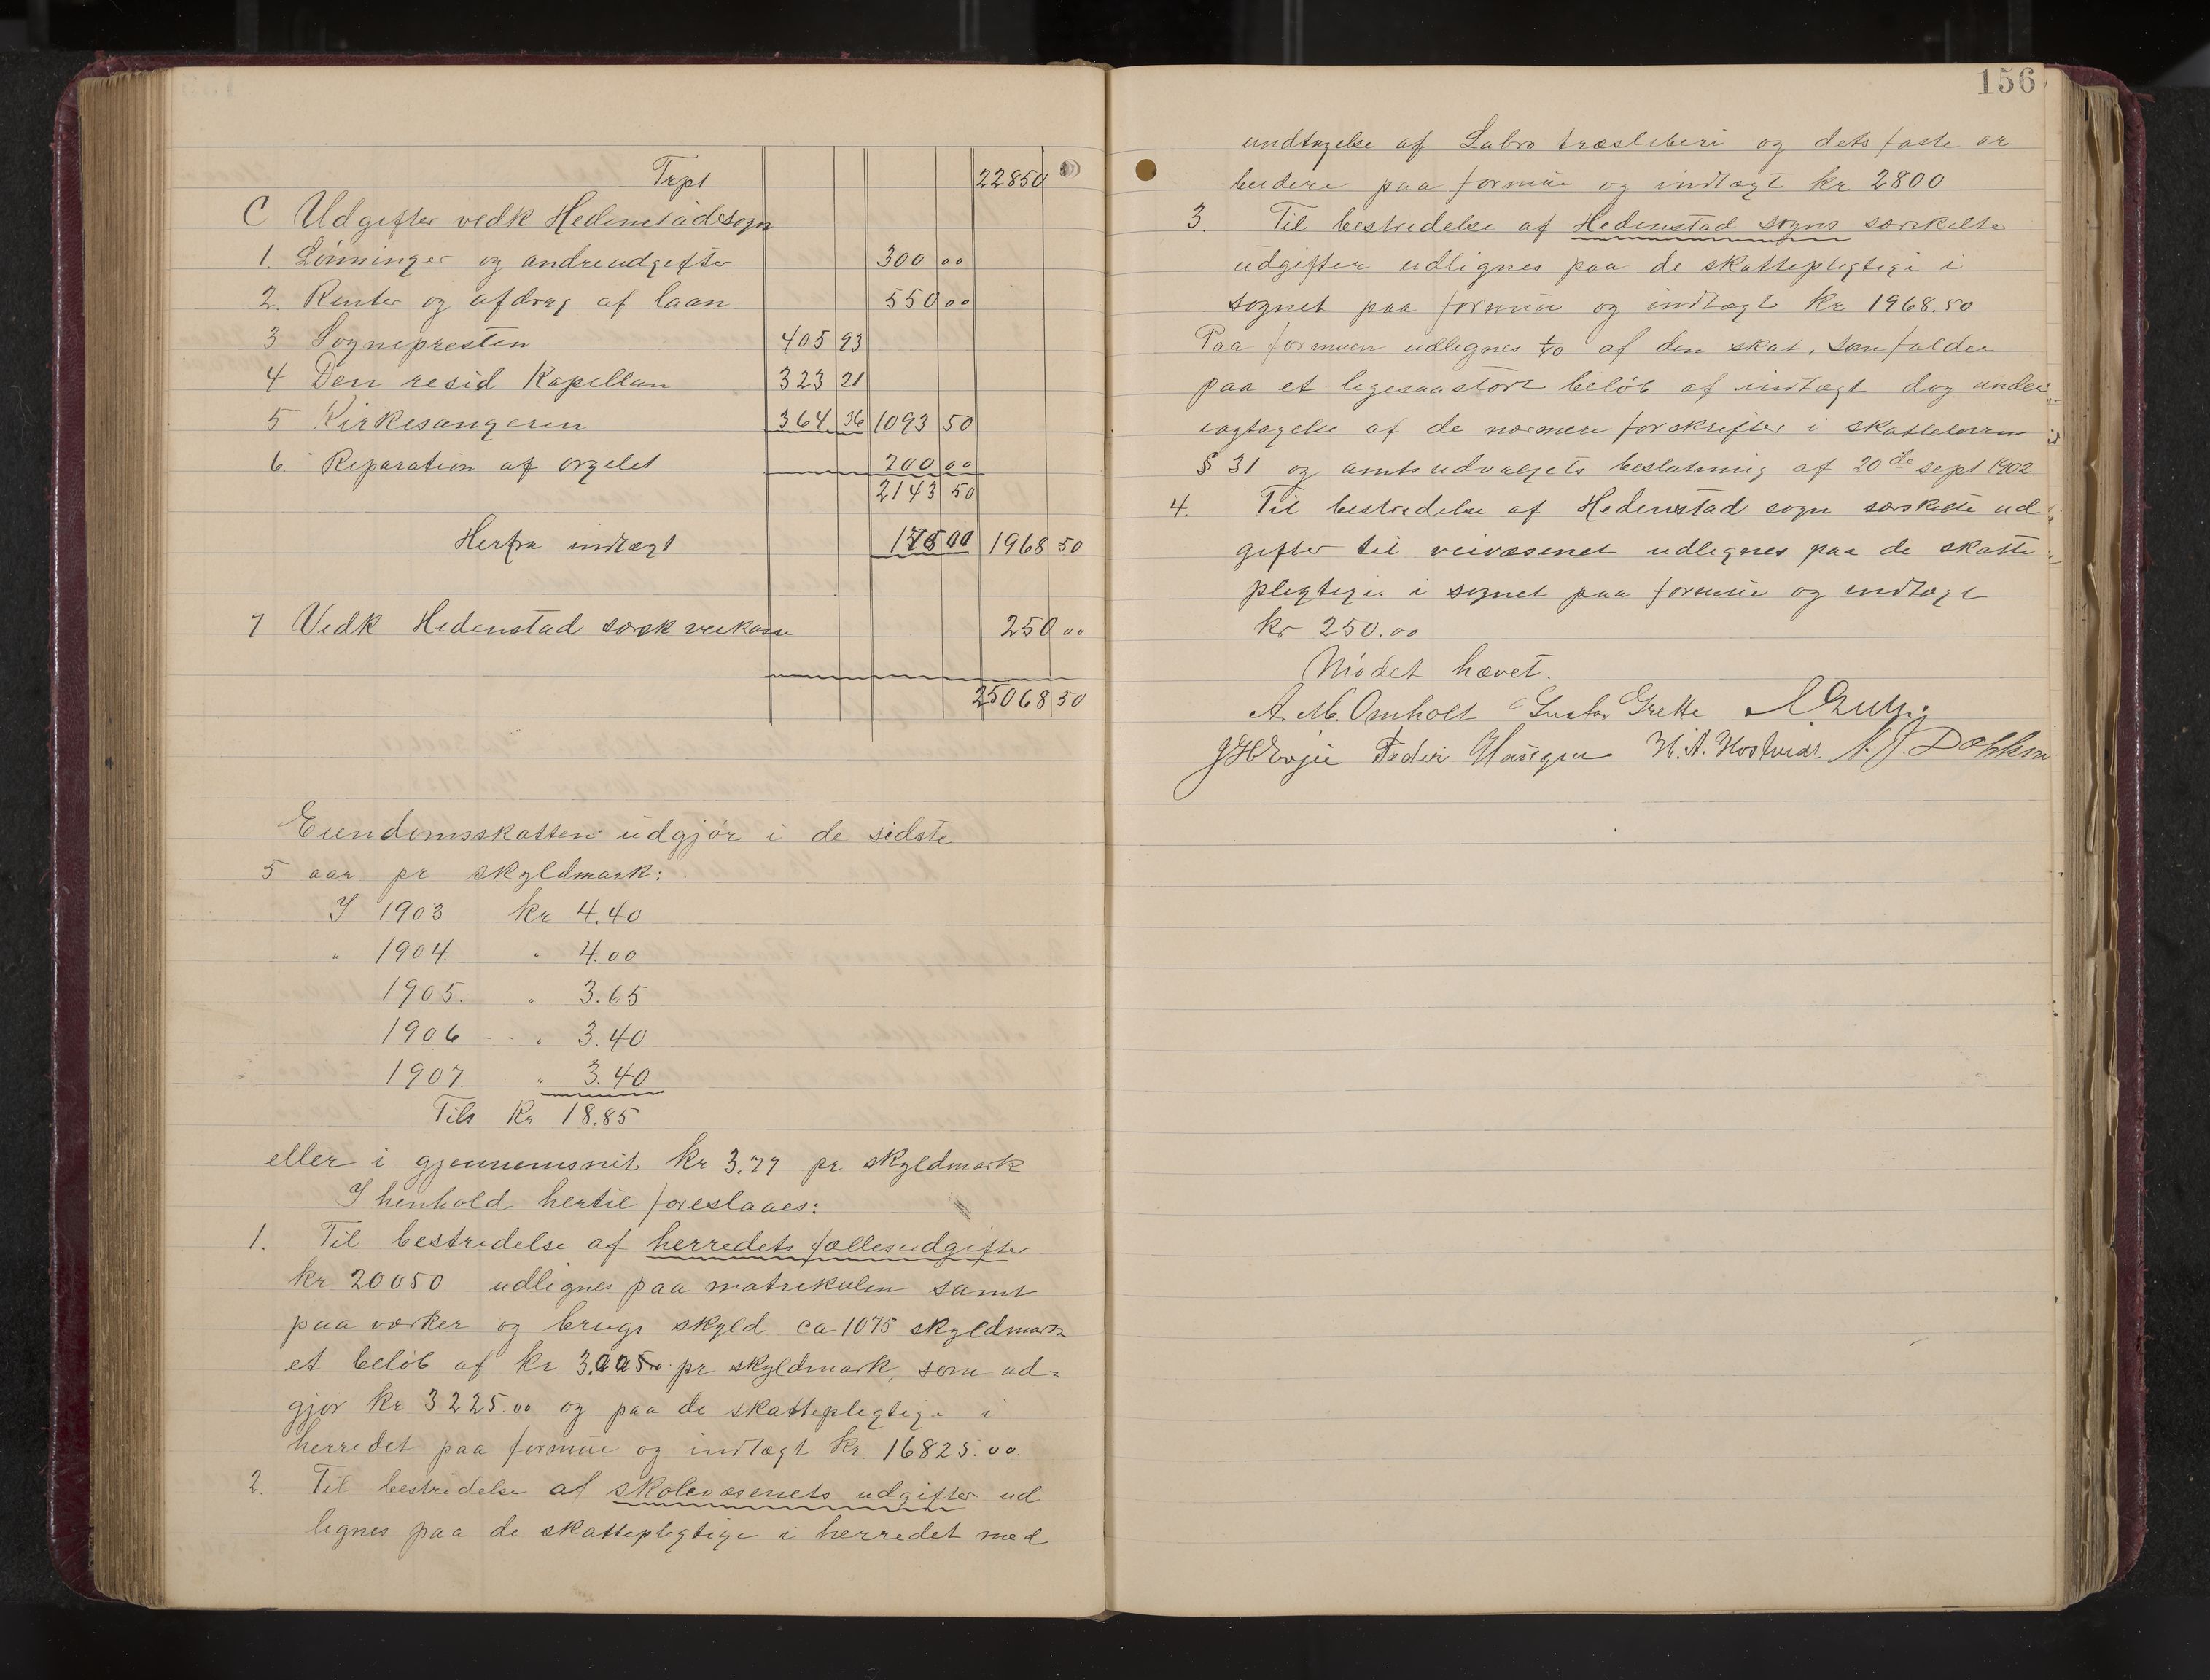 Trpt 22850
C Udgifter vedk Hedenstad sogn
1. Lönninger og andre udgifter 300 00
2. Renter og afdrag af laan 550 00
3 Sognepresten 405 93
4 Den resid Kapellan 323 21
5 Kirkesangeren 364 36 1093 50
6. Reparation af orgelet 200 00
2143 50
Herfra indtægt 175 00 1968 50
7 Vedk Hedenstad særsk veikasse 250 00
25068 50
Eiendomsskatten udgjör i de sidste
5 aar pr skyldmark:
I 1903 kr 4.40
" 1904 " 4.00
1905. " 3.65
1906 - - " 3.40
1907. " 3.40
Tils Kr 18.85
eller i gjennemsnit kr 3.77 pr skyldmark
I henhold hertil foreslaaes:
1. Til bestridelse af herredets fællesudgifter
kr 20050 udlignes paa matrikulen samt
paa værker og brugs skyld ca 1075 skyldmark
et belöb af kr pr skyldmark, som ud=
gjör kr 3225.00 og paa de skattepligtige i
herredet paa formue og indtægt kr. 16825.00.
2. Til bestridelse af skolevæsenets udgifter ud
lignes paa de skattepligtige i herredet med
156
undtagelse af Labro træsliberi og dets faste ar
beidere paa formue og indtægt kr 2800
3. Til bestridelse af Hedenstad sogns særskilte
udgifter udlignes paa de skattepligtige i
sognet paa formue og indtægt Kr 1968.50
Paa formuen udlignes 1/40 af den skat, som falder
paa et ligesaastort belöb af indtægt dog under
iagtagelse af de nærmere forskrifter i skatteloven
§ 31 og amtsudvalgets beslutning af 20de sept 1902.
4. Til bestridelse af Hedenstad sogn særskilte ud
gifter til veivæsenet udlignes paa de skatte
pligtige i sognet paa formue og indtægt
kr 250.00
Mödet hævet.
A. M. Omholt Gustav Grette
Peder Haugen H. A. Hostvedt